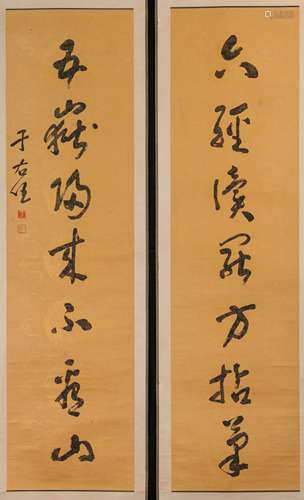 六經讀罷方拈筆
五嶽歸來不看山
于右任